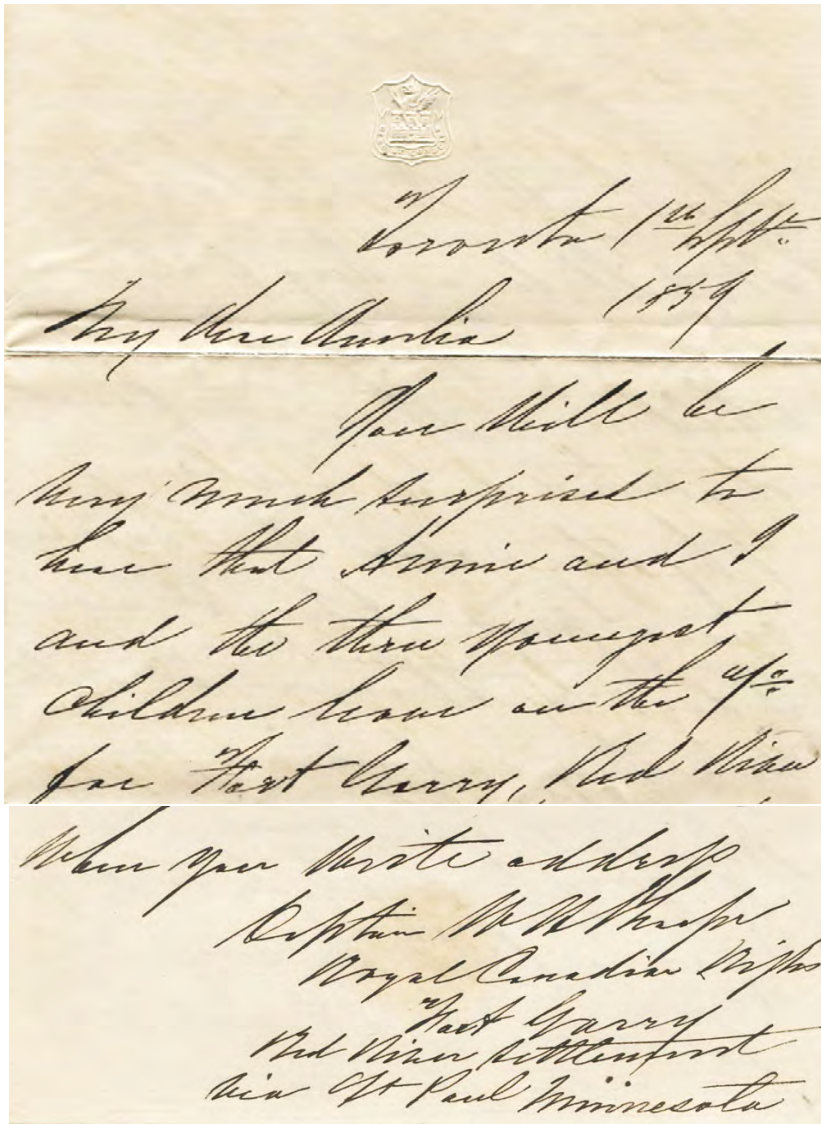 Toronto 1st Septr
1859
My dear Amelia
You will be
very much surprised to
hear that Annie and I
and the three youngest
children leave on the
for Fort Garry, Red River
When you write address
Captain W H Sharpe
Royal Canadian Rifles
Fort Garry
Red River Settlement
via St Paul Minnesota